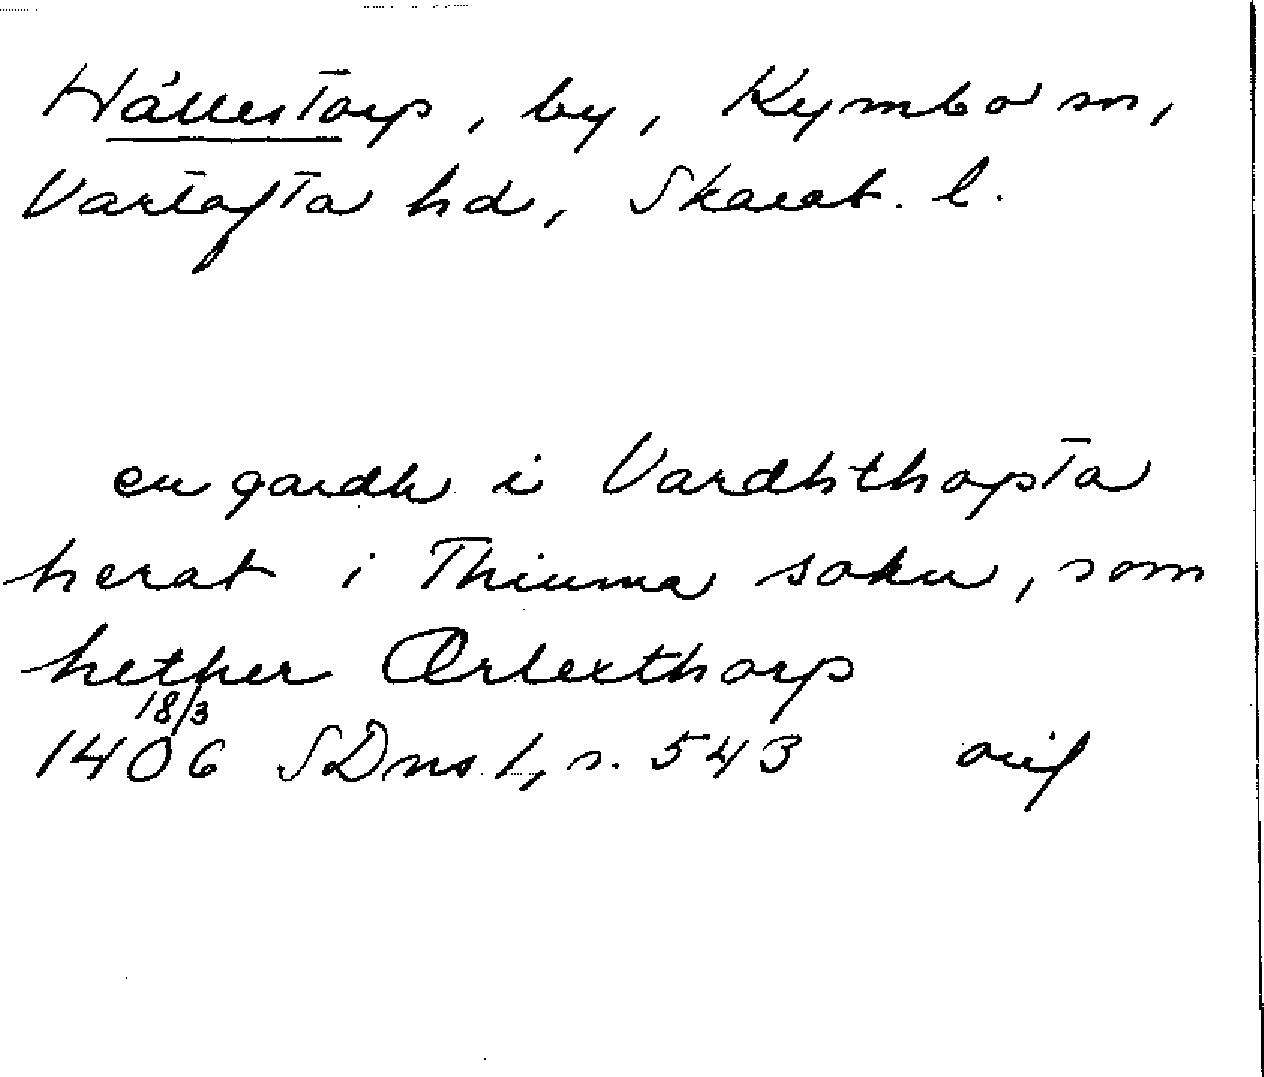 Hållestorp, by, Kymbo sn,
Vartofta hd, Skarab. l.
en gardh i Vardhthopta
herat i Thiuma sokn, som
hether Ørlexthorp
18/3
1406 SDns 1, s. 543 orig